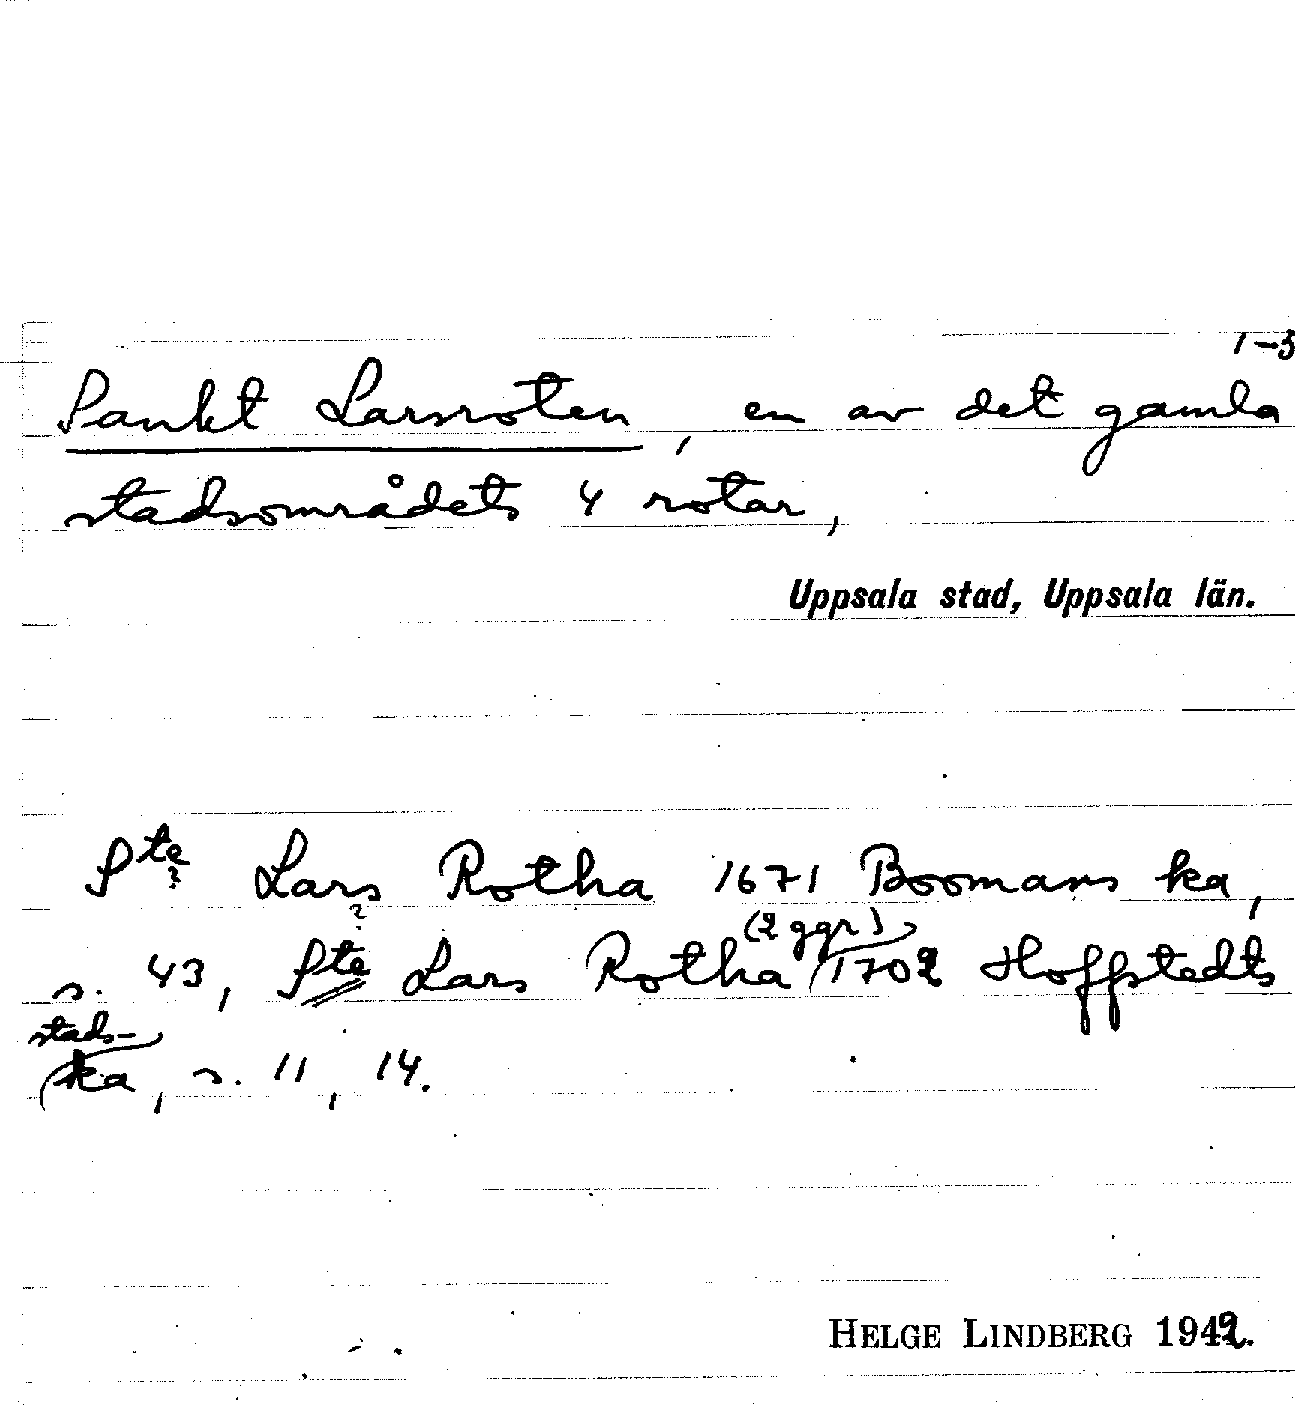 1-3
Sankt Larsroten, en av det gamla
stadsområdets 4 rotar,
Uppsala stad, Uppsala län.
Ste Lars Rotha 1671 Boomans ka,
?
? (2 ggr)
s. 43, Ste Lars Rotha 1702 Hoffstedts
stads-
ka, s. 11, 14.
HELGE LINDBERG 1942.